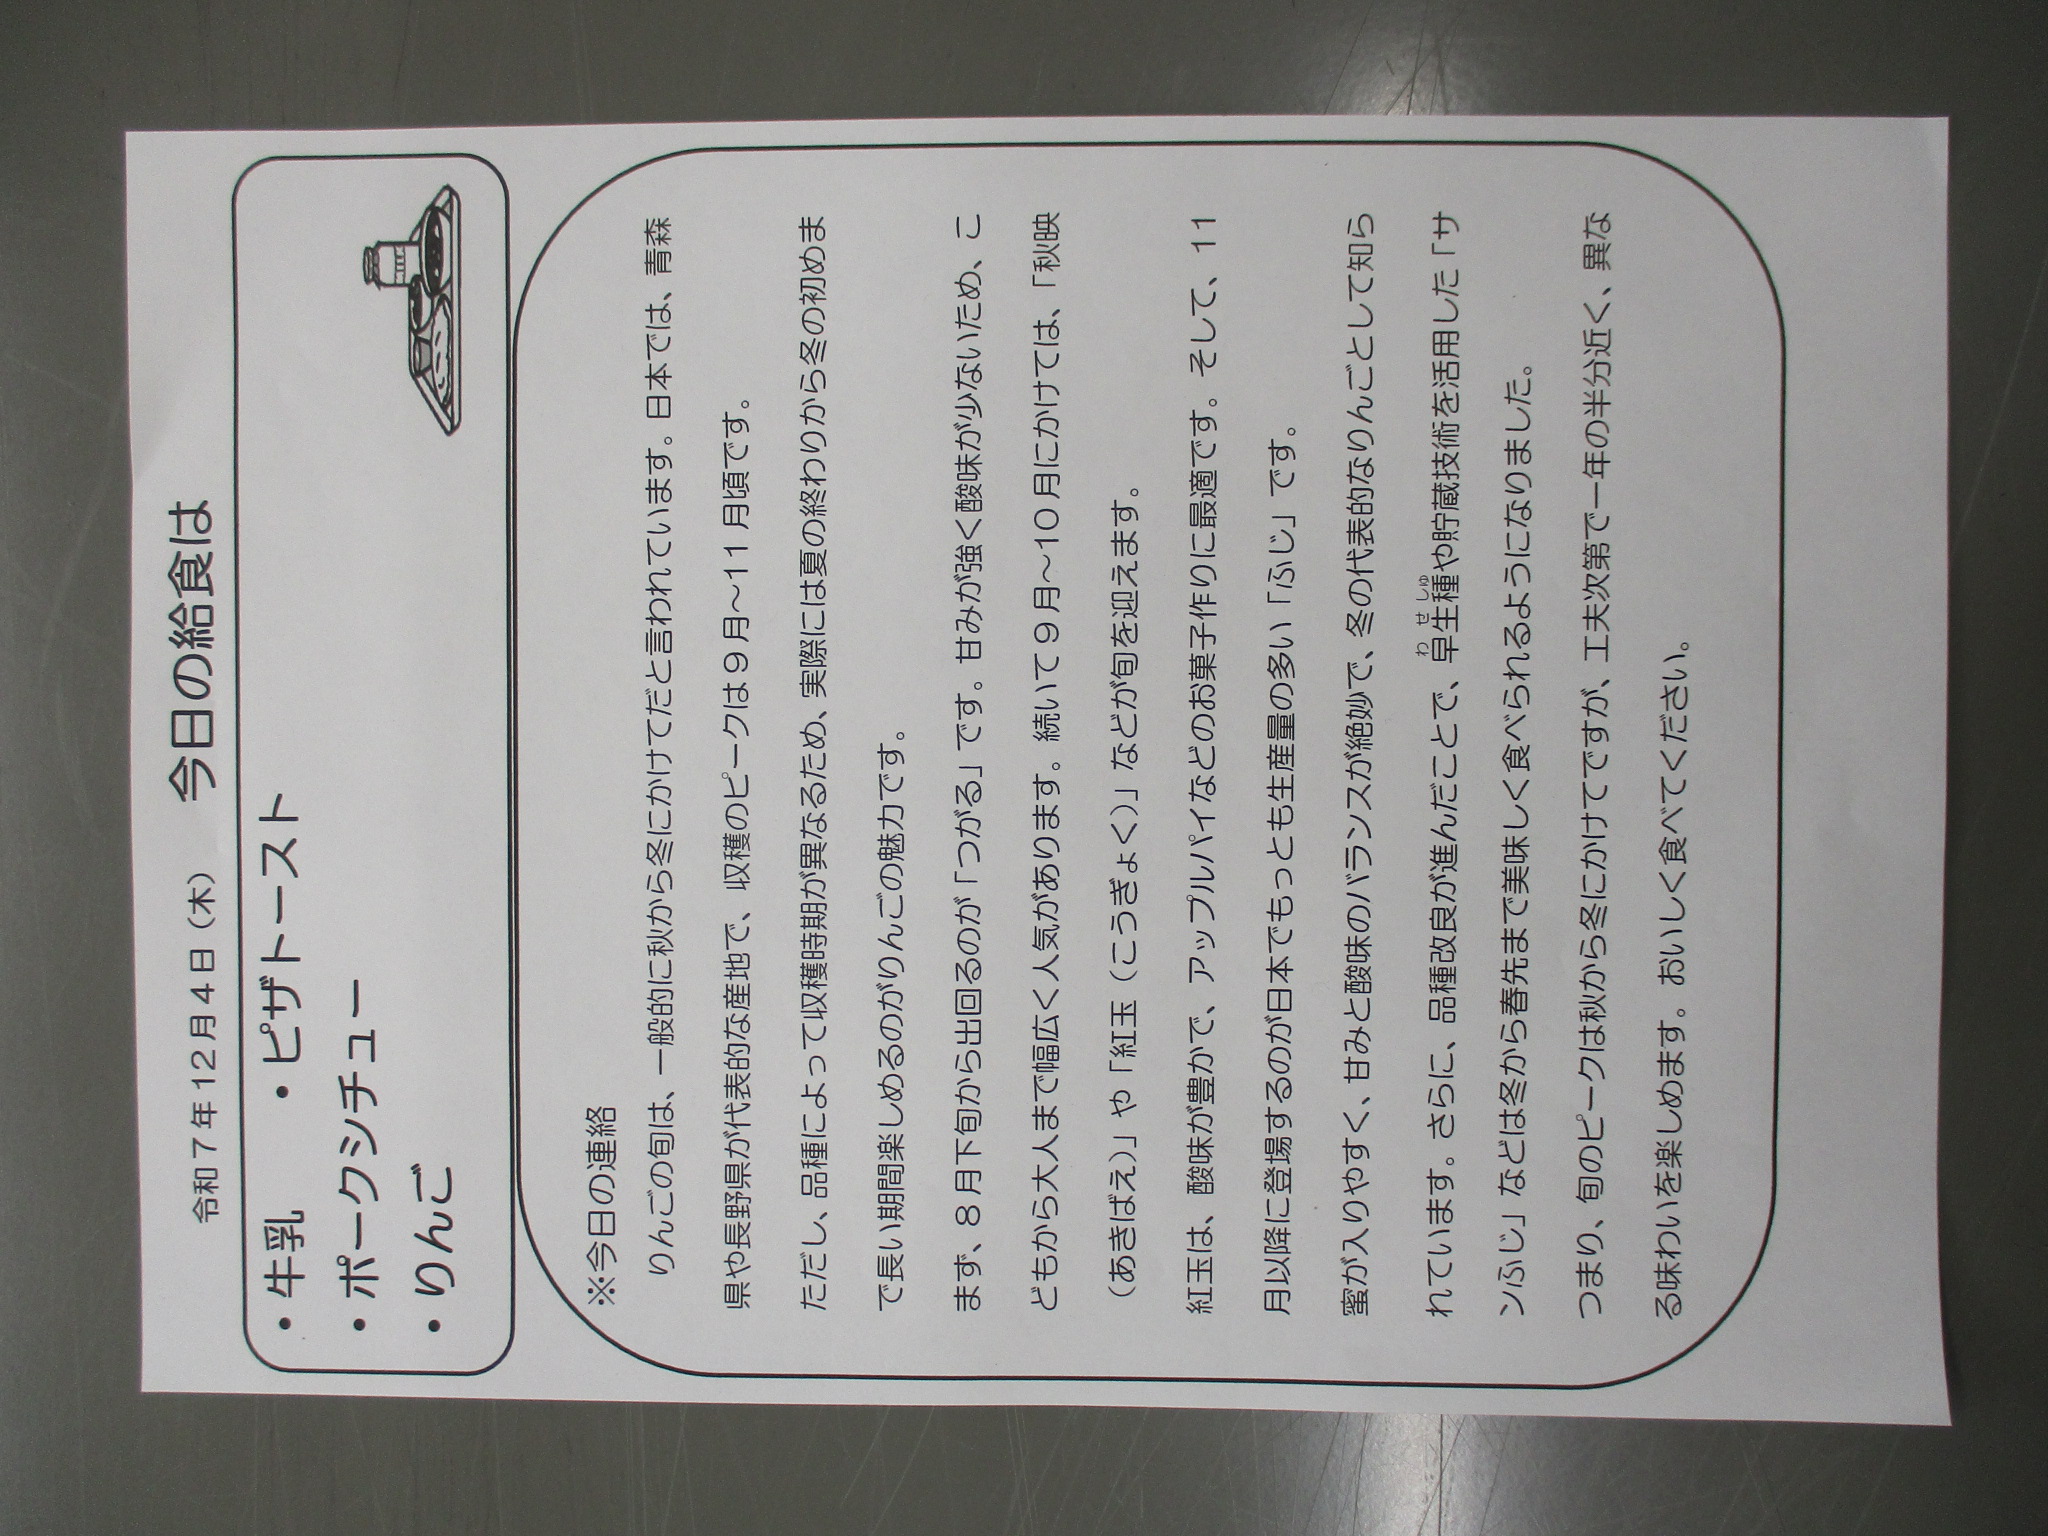 令和７年１２月４日（木）　今日の給食は
・牛乳　・ピザトースト
・ポークシチュー
・りんご
※今日の連絡
りんごの旬は、一般的に秋から冬にかけてだと言われています。日本では、青森
県や長野県が代表的な産地で、収穫のピークは９月～１１月頃です。
ただし、品種によって収穫時期が異なるため、実際には夏の終わりから冬の初めま
で長い期間楽しめるのがりんごの魅力です。
まず、８月下旬から出回るのが「つがる」です。甘みが強く酸味が少ないため、こ
どもから大人まで幅広く人気があります。続いて９月～１０月にかけては、「秋映
（あきばえ）」や「紅玉（こうぎょく）」などが旬を迎えます。
紅玉は、酸味が豊かで、アップルパイなどのお菓子作りに最適です。そして、１１
月以降に登場するのが日本でもっとも生産量の多い「ふじ」です。
蜜が入りやすく、甘みと酸味のバランスが絶妙で、冬の代表的なりんごとして知ら
れています。さらに、品種改良が進んだことで、早生種（わせしゅ）や貯蔵技術を活用した「サ
ンふじ」などは冬から春先まで美味しく食べられるようになりました。
つまり、旬のピークは秋から冬にかけてですが、工夫次第で一年の半分近く、異な
る味わいを楽しめます。おいしく食べてください。